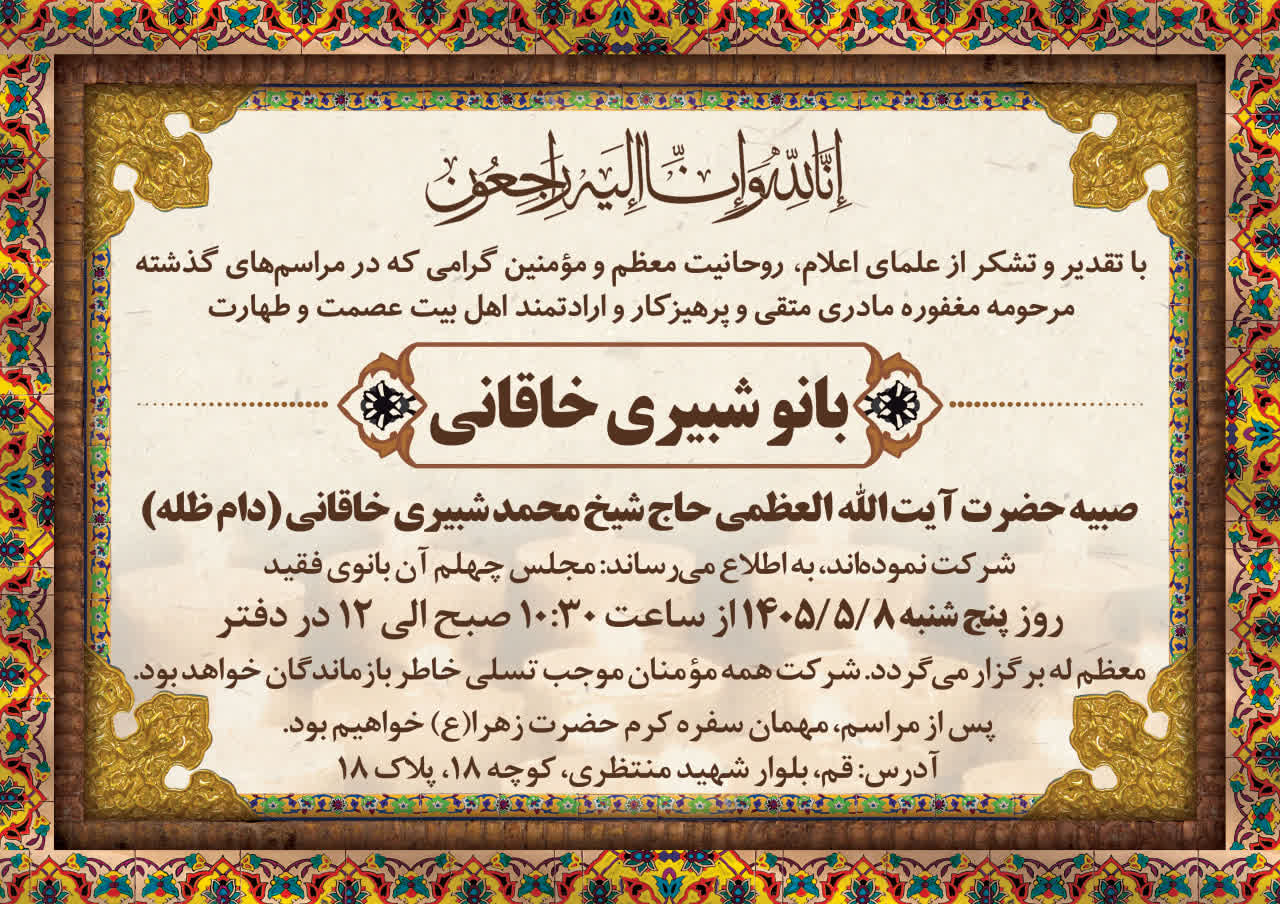 إِنَّا لِلَّهِ وَإِنَّا إِلَيْهِ رَاجِعُونَ
با تقدیر و تشکر از علمای اعلام، روحانیت معظم و مؤمنین گرامی که در مراسم‌های گذشته
مرحومه مغفوره مادری متقی و پرهیزکار و ارادتمند اهل بیت عصمت و طهارت
بانو شبیری خاقانی
صبیه حضرت آیت‌الله العظمی حاج شیخ محمد شبیری خاقانی (دام ظله)
شرکت نموده‌اند، به اطلاع می‌رساند: مجلس چهلم آن بانوی فقید
روز پنج شنبه ۱۴۰۵/۵/۸ از ساعت ۱۰:۳۰ صبح الی ۱۲ در دفتر
معظم له برگزار می‌گردد. شرکت همه مؤمنان موجب تسلی خاطر بازماندگان خواهد بود.
پس از مراسم، مهمان سفره کرم حضرت زهرا(ع) خواهیم بود.
آدرس: قم، بلوار شهید منتظری، کوچه ۱۸، پلاک ۱۸